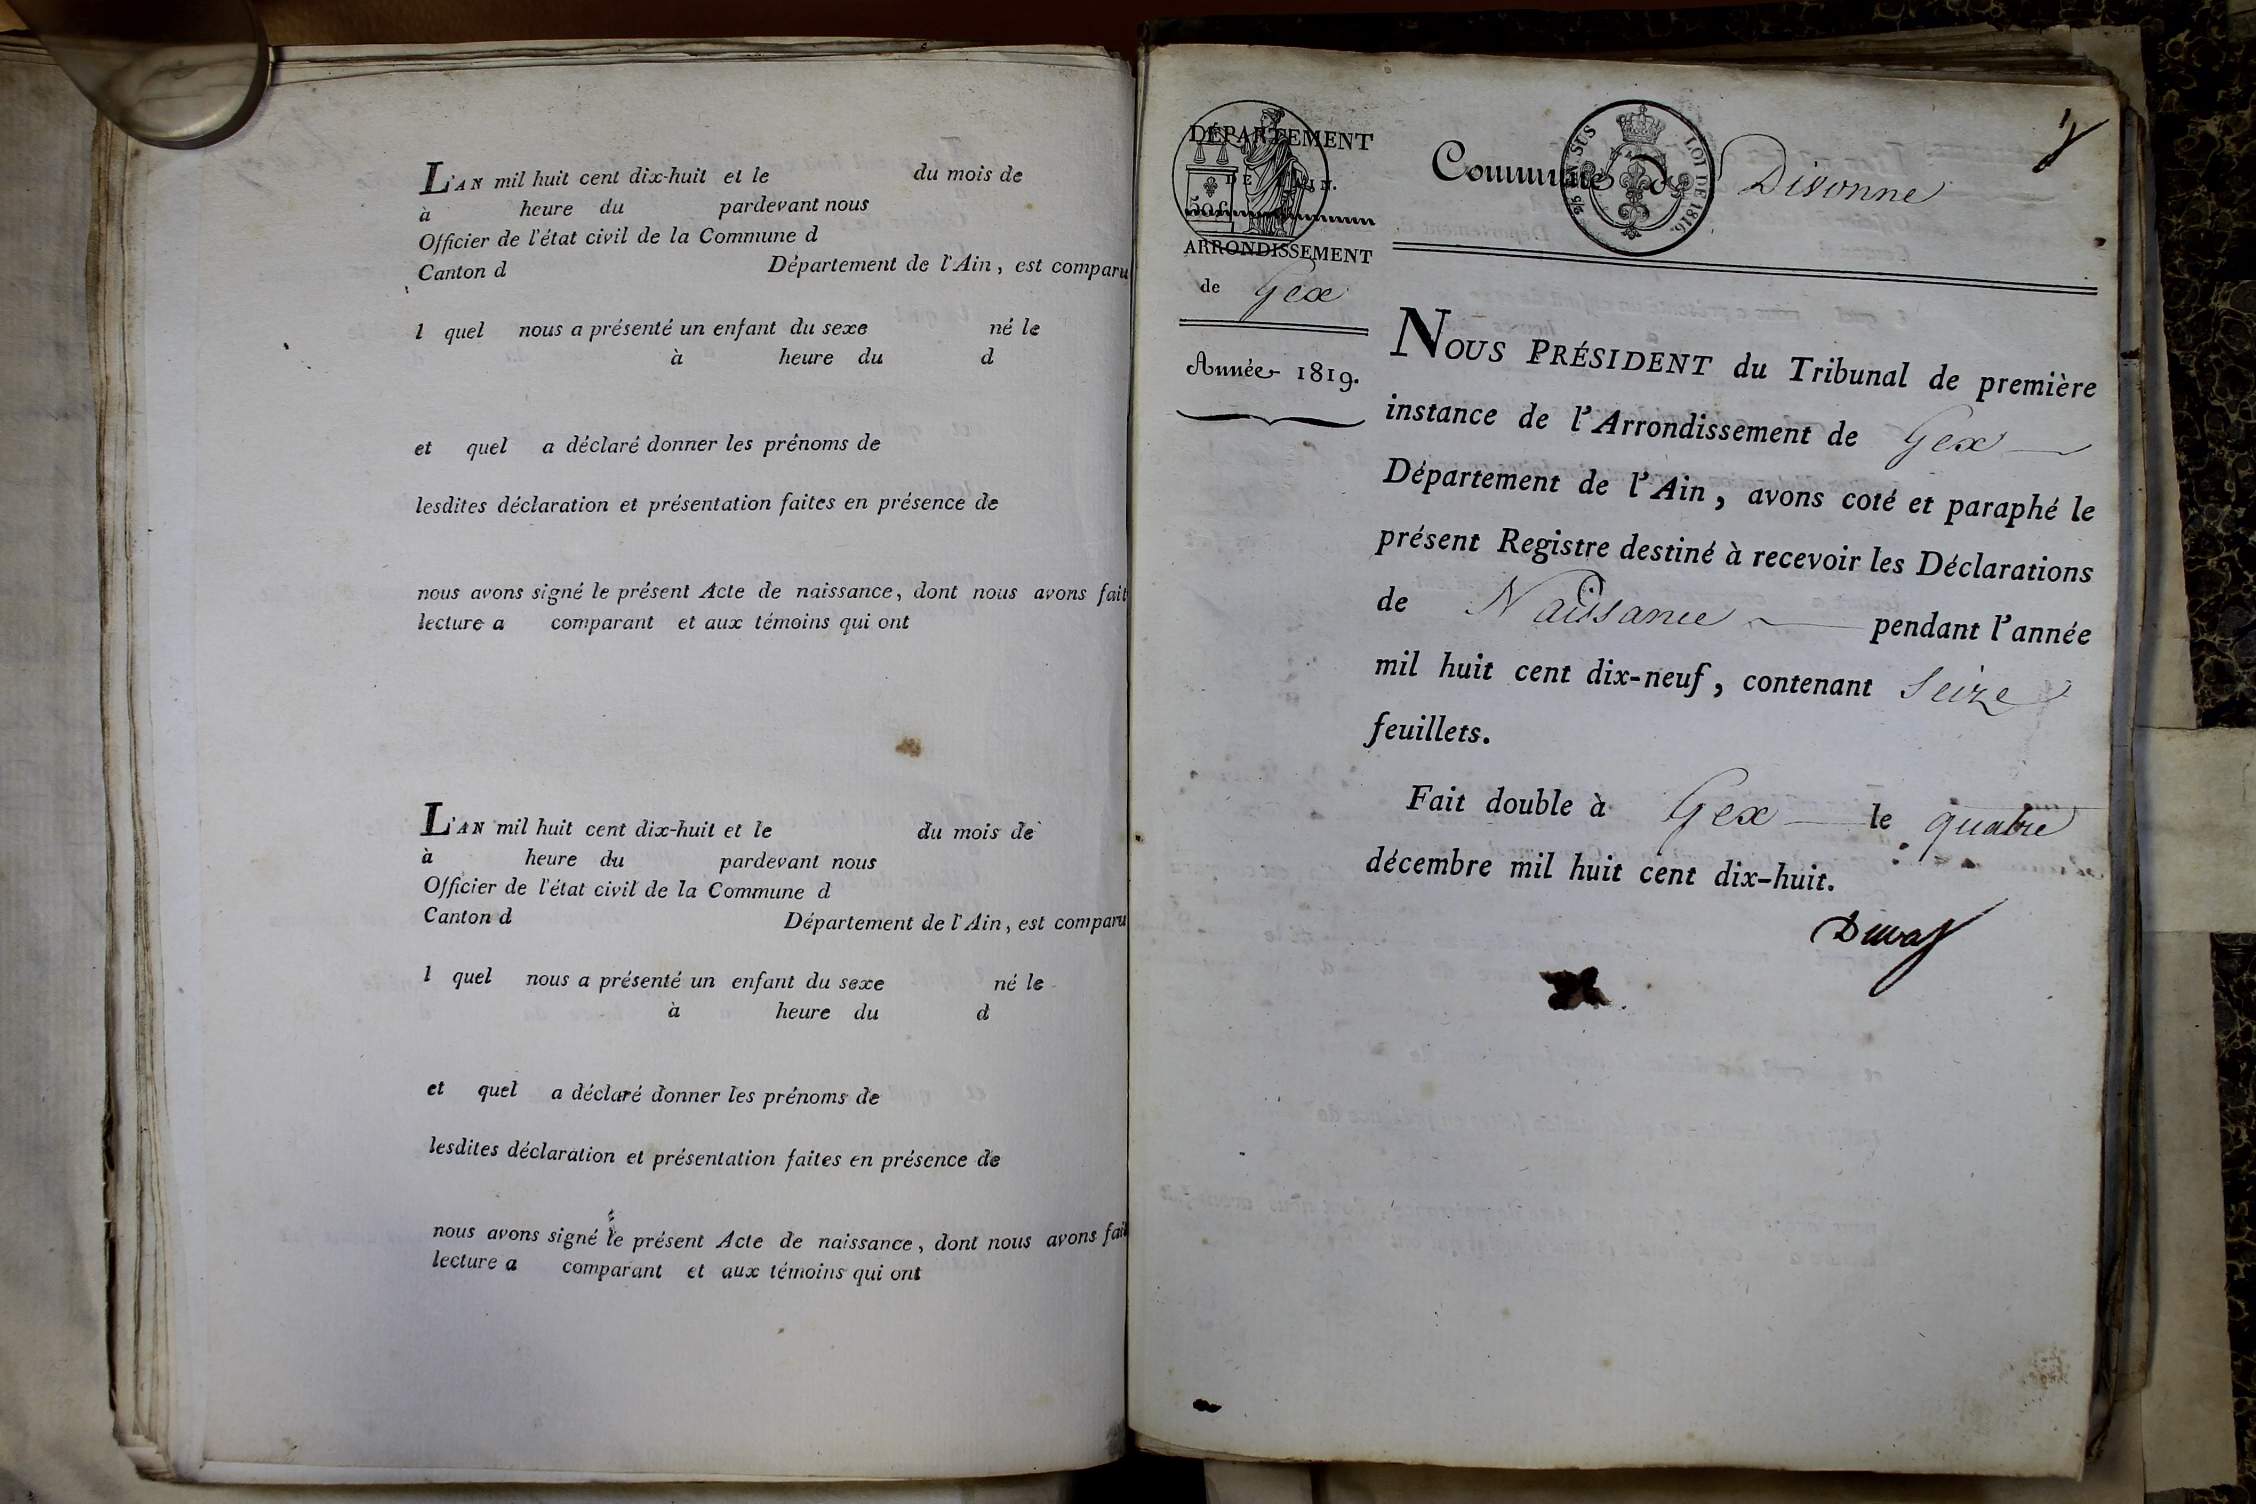 L'AN mil huit cent dix-huit et le du mois de
à heure du pardevant nous
Officier de l'état civil de la Commune d
Canton d Département de l'Ain, est comparu
l quel nous a présenté un enfant du sexe né le
à heure du d
et quel a déclaré donner les prénoms de
lesdites déclaration et présentation faites en présence de
nous avons signé le présent Acte de naissance, dont nous avons fait
lecture a comparant et aux témoins qui ont
L'AN mil huit cent dix-huit et le du mois de
à heure du pardevant nous
Officier de l'état civil de la Commune d
Canton d Département de l'Ain, est comparu
l quel nous a présenté un enfant du sexe né le
à heure du d
et quel a déclaré donner les prénoms de
lesdites déclaration et présentation faites en présence de
nous avons signé le présent Acte de naissance, dont nous avons fait
lecture a comparant et aux témoins qui ont
DÉPARTEMENT
DE L'AIN.
50 c.
ARRONDISSEMENT
de Gex
Année 1819.
EN SUS LOI DE 1816.
Commune de Divonne
1
NOUS PRÉSIDENT du Tribunal de première
instance de l'Arrondissement de Gex
Département de l'Ain, avons coté et paraphé le
présent Registre destiné à recevoir les Déclarations
de Naissance pendant l'année
mil huit cent dix-neuf, contenant Seize
feuillets.
Fait double à Gex le quatre
décembre mil huit cent dix-huit.